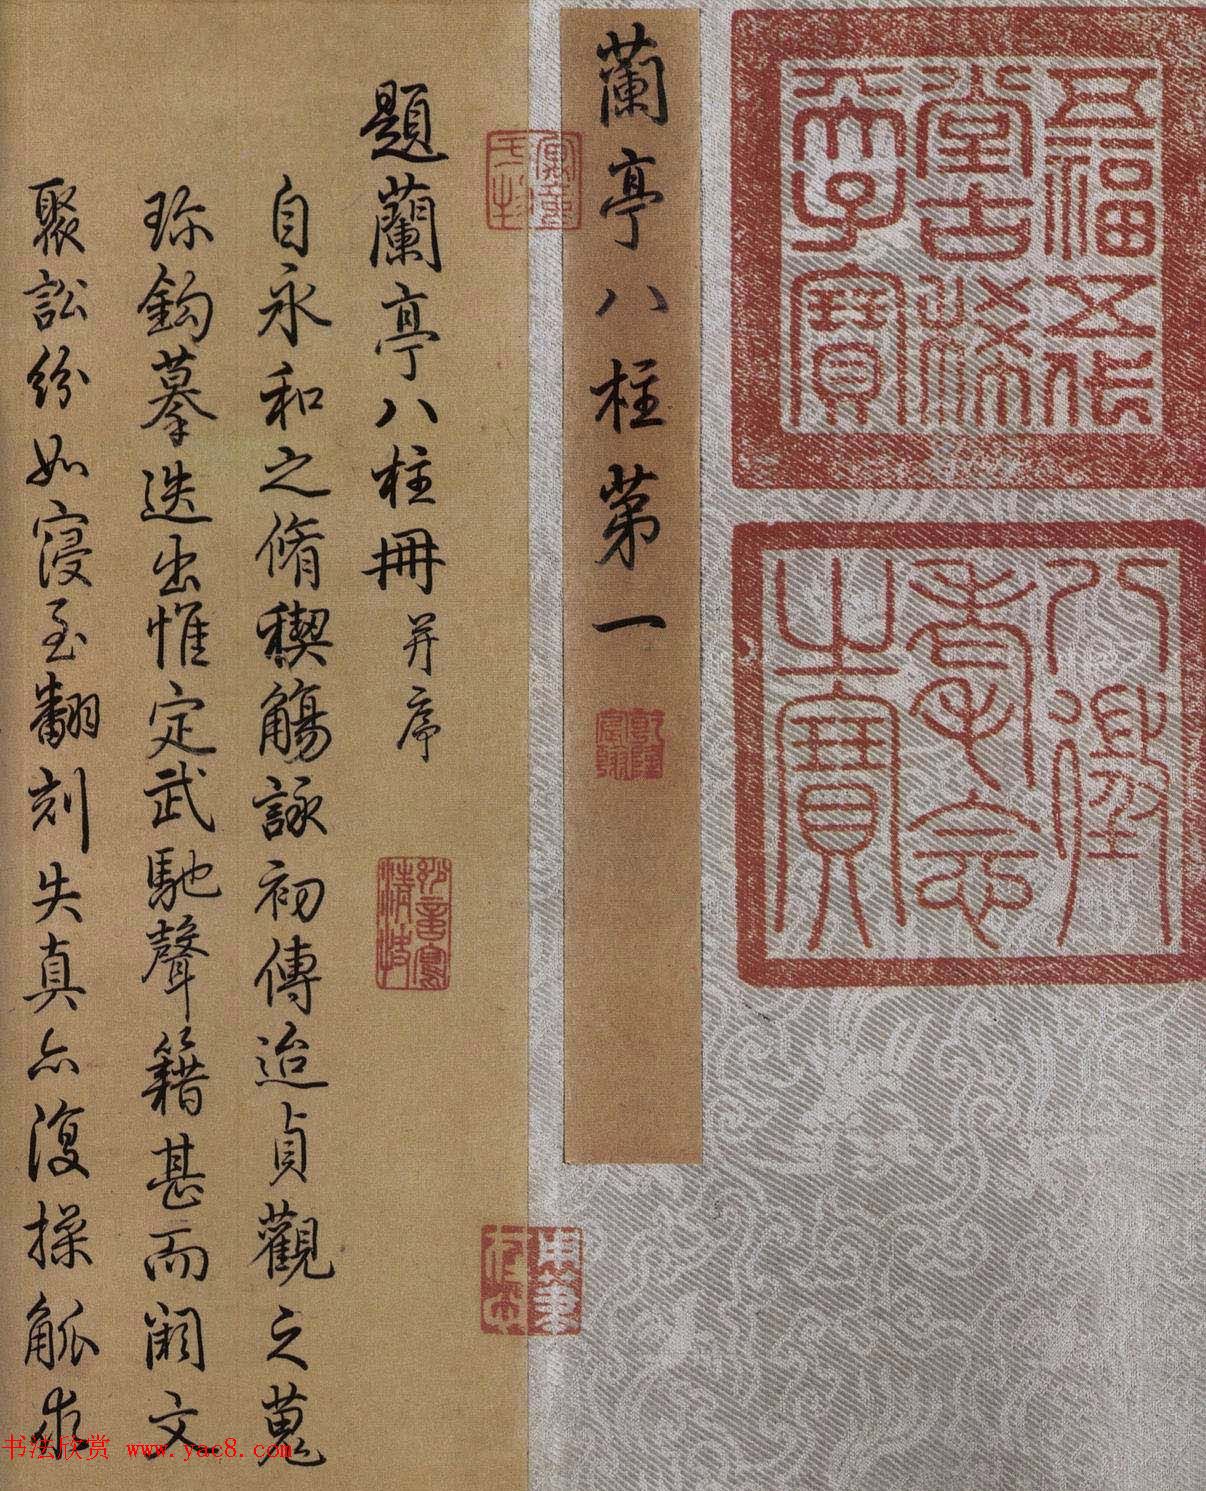 五福五代
堂古稀
天子寶
八徵
耄念
之寶
蘭亭八柱第一
乾隆
宸翰
題蘭亭八柱冊并序
自永和之脩禊觴詠初傳迨貞觀之蒐
珎鉤摹迭出惟定武馳聲籍甚而闕文
聚訟紛如寖至翻刻失真亦復操觚求
書法欣赏 www.yac8.com